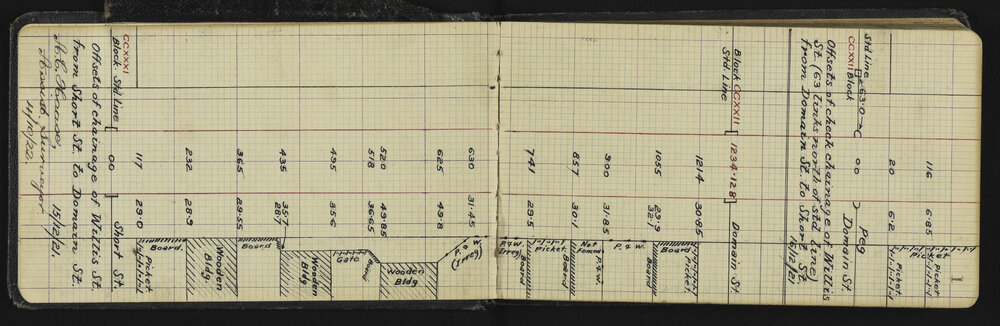 1
116 6·85 Picket
Picket
20 6·2 Picket
Std Line 63·0 C 00 Peg
CCXXII Block Domain St.
Offsets of check chainage of Willis
St. (63 links north of std line)
from Domain St. to Short St.
16/12/21
Block CCXXII [1234·128] Domain St.
Std Line
1214 30·85
Picket
Board
1055 29·9
32·7
P. & W.
900 31·85
P. & W.
Not Fenced
857 30·1
Board
Picket
741 29·5
Board
P. & W.
(Irreg)
630 31·45 P. & W.
(Irreg)
625 49·8
Wooden
Bldg
520 49·85
518 36·65
Board
Gate
495 35·6
Wooden
Bldg
435 35·7
28·7
Board
365 29·55
Wooden
Bldg
232 28·9
Board
117 29·0
Picket
00 Short St.
CCXXXI
Block Std Line
Offsets of chainage of Willis St.
from Short St. to Domain St.
15/12/21.
Assist. Surveyor